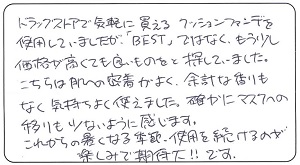 ドラッグストアで気軽に買えるクッションファンデを
使用していましたが、「BEST」ではなく、もう少し
価格が高くても良いものをと探していました。
こちらは肌への密着がよく、余計な香りも
なく気持ちよく使えました。確かにマスクへの
移りも少ないように感じます。
これからの暑くなる季節、使用を続けるのが
楽しみで期待大!!です。